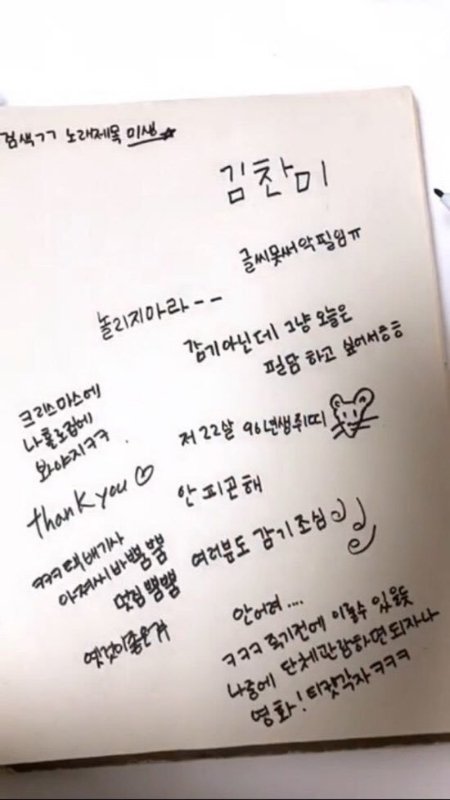 검색ㄱㄱ 노래제목 미생☆
김찬미
글씨못써악필임ㅠ
놀리지마라--
감기아닌데 그냥 오늘은
필담 하고 싶어서ㅎㅎ
크리스마스에
나홀로집에
봐야지ㅋㅋ
저 22살 96년생쥐띠
thank you ♡
안 피곤해
여러분도 감기 조심
ㅋㅋㅋ택배기사
아저씨 바쁨쁨
안어려....
옛것이좋은겨
ㅋㅋㅋ 죽기전에 이룰수 있을듯
나중에 단체관람하면되자나
영화! 티켓각자ㅋㅋㅋ